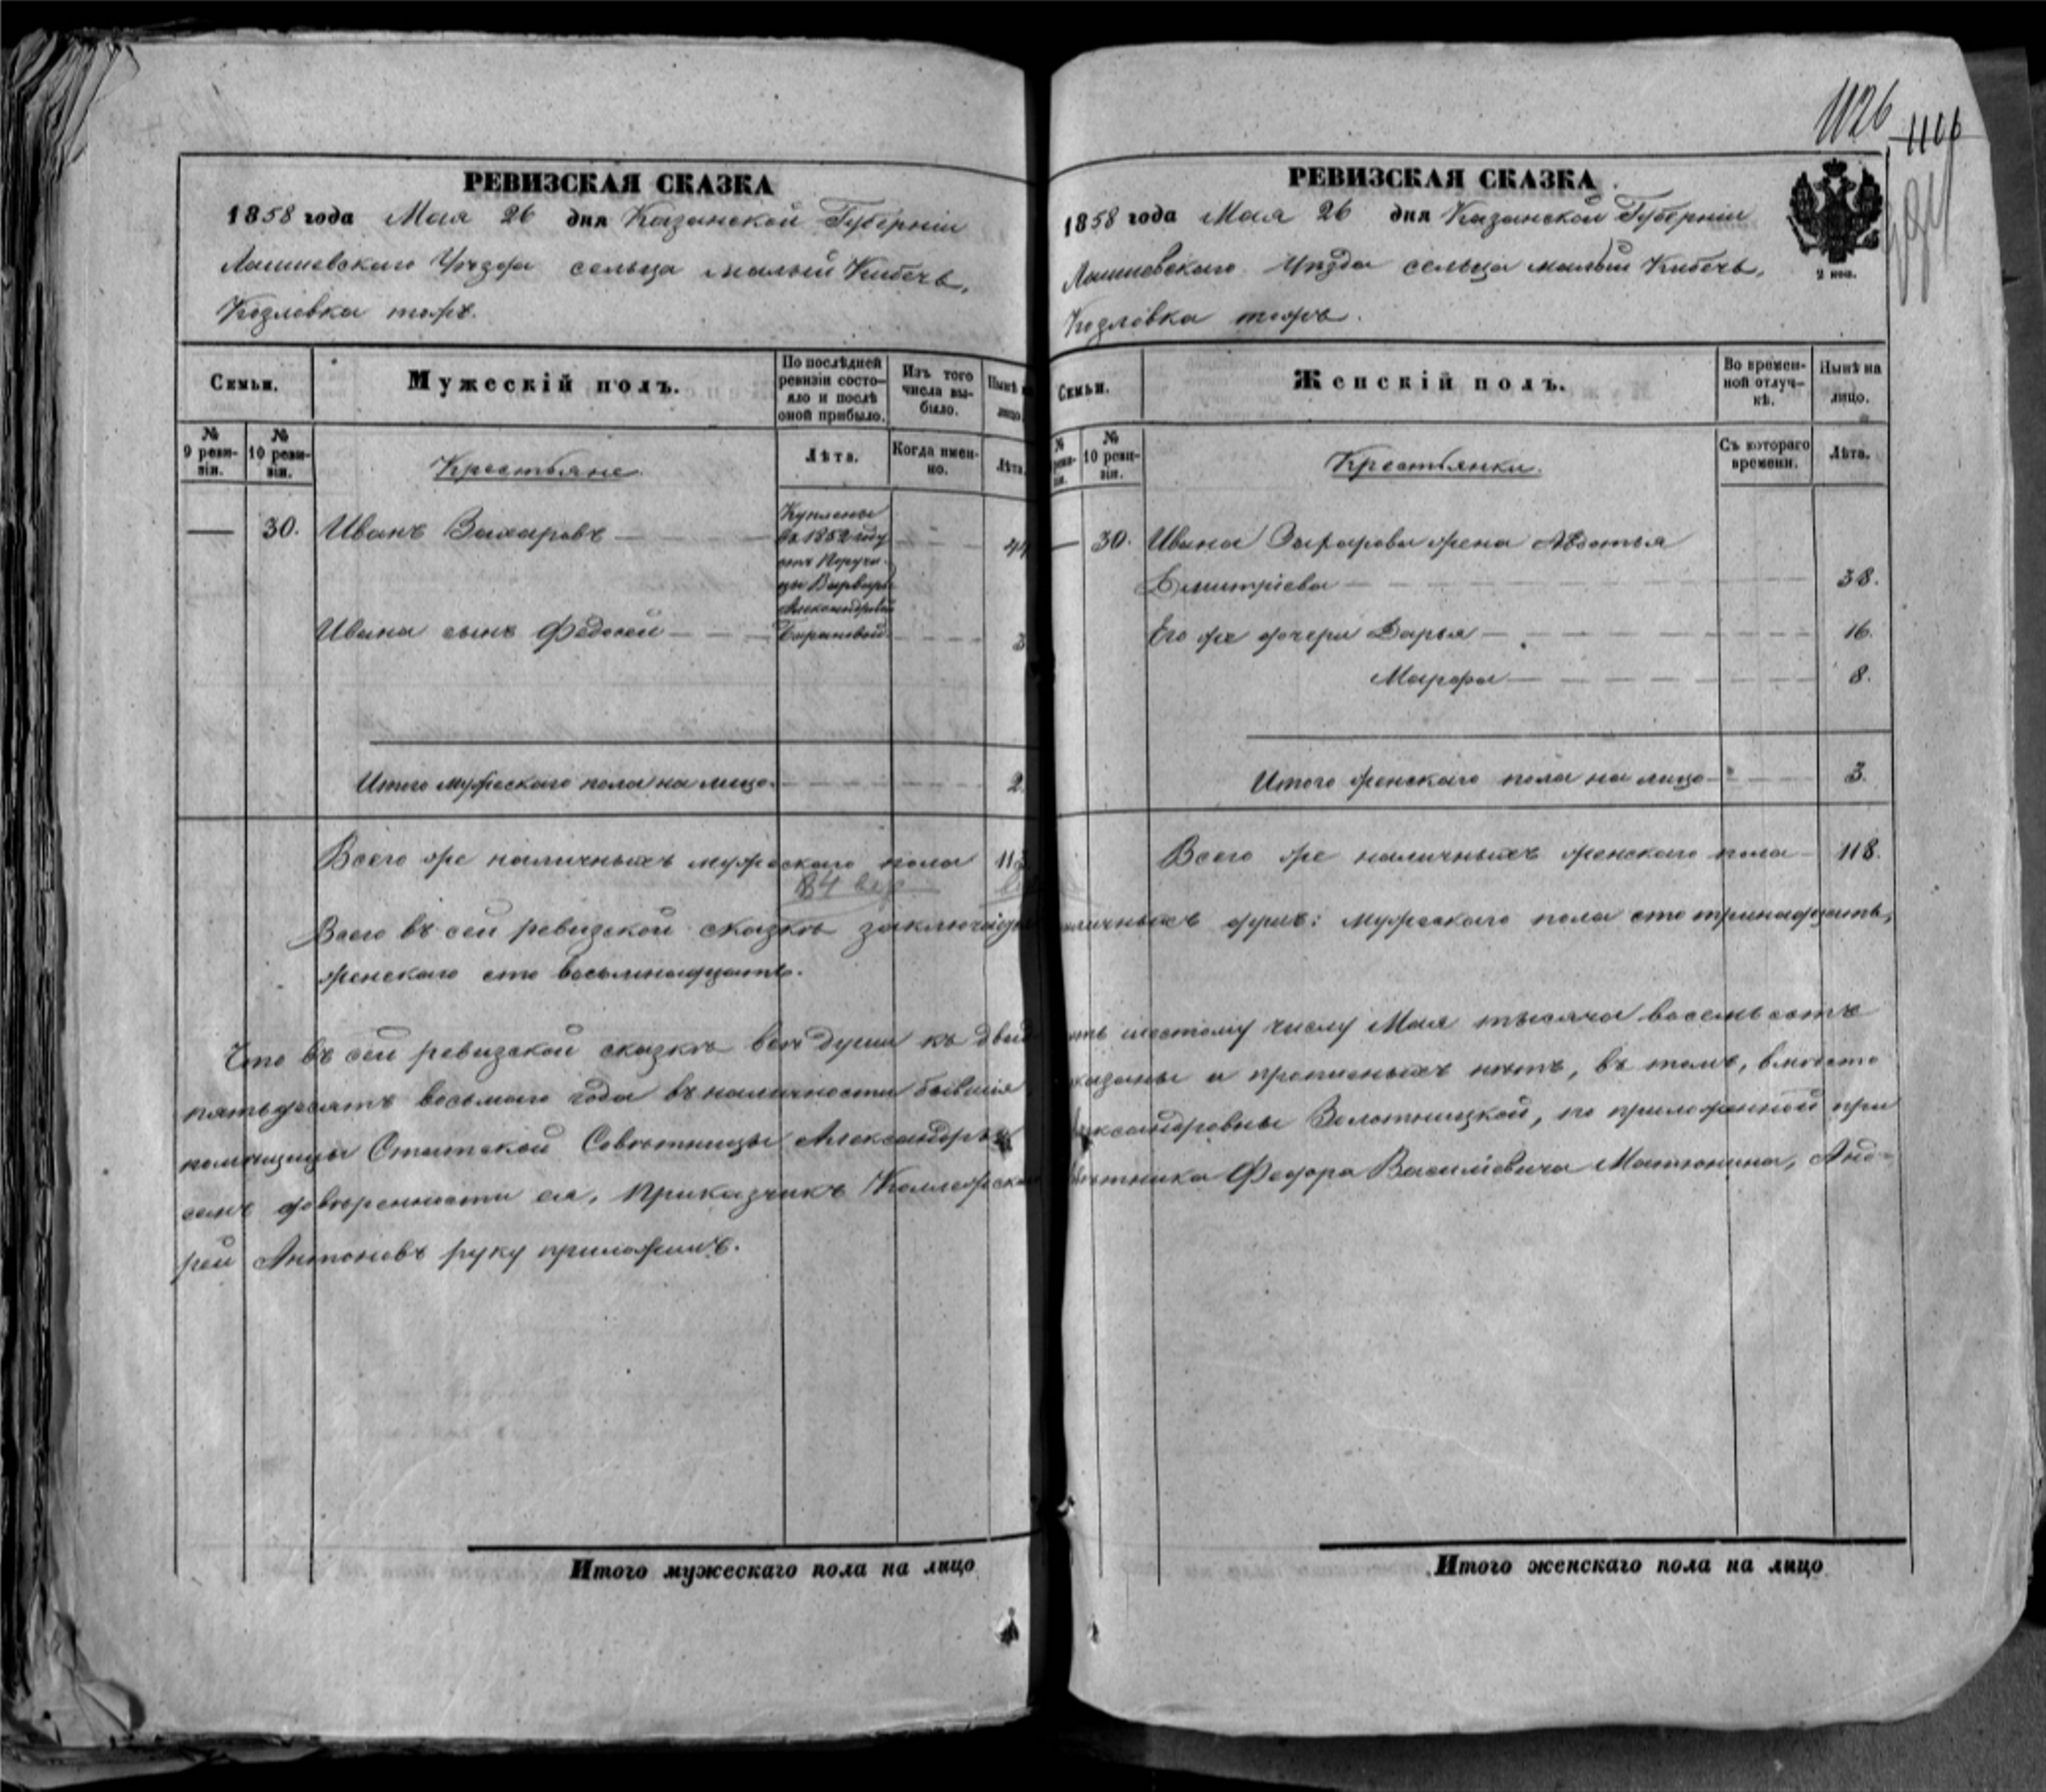 1126
1116
РЕВИЗСКАЯ СКАЗКА
1858 года Мая 26 дня Казанской Губерніи
Лаишевскаго Уѣзда сельца малый Кибечь,
Козловка тожъ.
Семьи.
Мужескій полъ.
По послѣдней ревизіи состояло и послѣ оной прибыло.
Изъ того числа выбыло.
Нынѣ на лицо.
№ 9 ревизіи.
№ 10 ревизіи.
Крестьяне.
Лѣта.
Когда именно.
Лѣта.
— 30. Иванъ Захаровъ — 44
Куплены
въ 1852 году
отъ Поручи-
цы Варвары
Александровой
Барановой.
Ивана сынъ Федосей — 3
Итого мужескаго пола на лицо — 2.
Всего же наличныхъ мужескаго пола 113
84
РЕВИЗСКАЯ СКАЗКА
2 коп.
1858 года Мая 26 дня Казанской Губерніи
Лаишевскаго Уѣзда сельца малый Кибечь,
Козловка тожъ.
Семьи.
Женскій полъ.
Во временной отлучкѣ.
Нынѣ на лицо.
№ 10 ревизіи.
Крестьянки.
Съ котораго времени.
Лѣта.
— 30. Ивана Захарова жена Авдотья
Дмитріева — 38.
Его же дочери Дарья — 16.
Марфа — 8.
Итого женскаго пола на лицо — 3.
Всего же наличныхъ женскаго пола — 118.
Всего въ сей ревизской сказкѣ заключается наличныхъ душъ: мужескаго пола сто тринадцать,
женскаго сто восьмнадцать.
Что въ сей ревизской сказкѣ всѣ души къ двадцать шестому числу Мая тысяча восемьсотъ
пятьдесятъ восьмаго года въ наличности бывшія показаны и прописныхъ нѣтъ, въ томъ, вмѣсто
помѣщицы Статской Совѣтницы Александры Александровны Золотницкой, по приложенной при
семъ довѣренности ея, Прикащикъ Коллежскаго Совѣтника Федора Васильевича Матюнина, Анд-
рей Антоновъ руку приложилъ.
Итого мужескаго пола на лицо
Итого женскаго пола на лицо